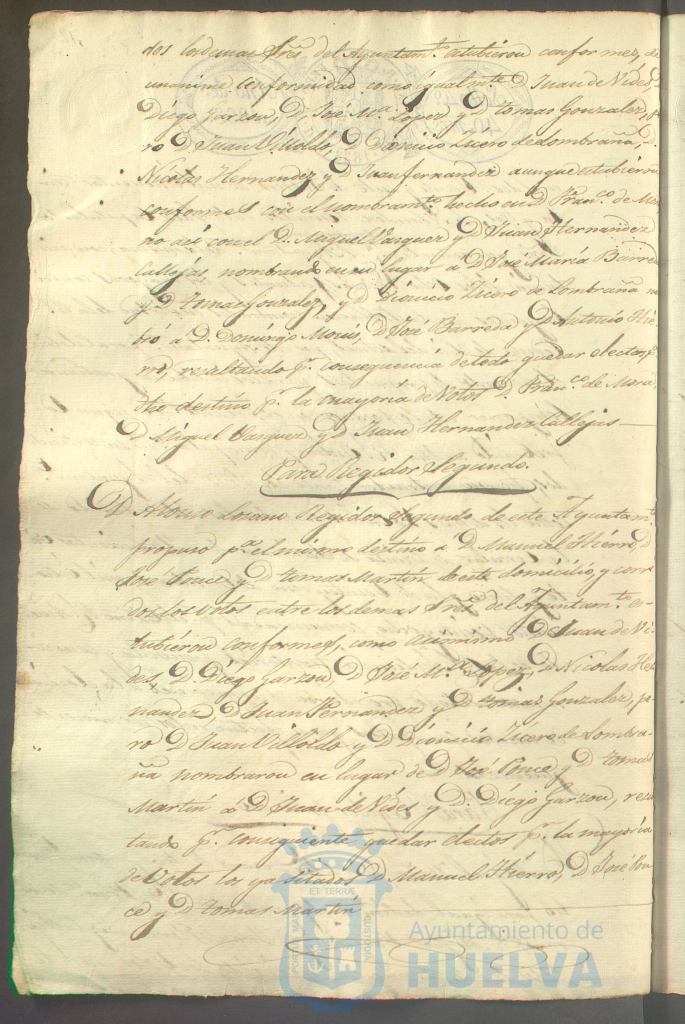 dos los demas Sres. del Ayuntamto. estubieron conformes, de
unanime conformidad como igualmte. D. Juan de Vides,
Diego Garzon, D. José Ma. Lopez, y D. Tomas Gonzalez, pe
ro D. Juan Villoldo, D. Dionicio Licero de Lombraña, D.
Nicolas Hernandez y D. Juan fernandez aunque estubieron
conformes con el nombramto. hecho en D. Franco. de Mora
no asi con el D. Miguel Vazquez y D. Juan Hernandez
Callejas, nombrando en su lugar a D. José Maria Barreda
y D. Tomas Gonzalez, y D. Dionicio Licero de Lombraña no
bró á D. Domingo D. José Barreda y D. Antonio Hie
rro, resultando pr. consequencia de todo quedar electos pa.
dho destino pr. la mayoria de Votos D. Franco. de Mora
D. Miguel Vazquez y D. Juan Hernandez Callejas
Para Regidor Segundo.
D. Alonso Lozano Regidor segundo de este Ayuntamto.
propuso pa. el mismo destino a D. Manuel Hierro, D.
José Ponce, y D. Tomas Martin de este domicilio, y corri
dos los votos entre los demas Sres. del Ayuntamto. es
tubieron conformes, como asimismo D. Juan de Vi
des, D. Diego Garzon, D. José Ma. Lopez, D. Nicolas Her
nandez, D. Juan Fernandez y D. Tomas Gonzalez, pe
ro D. Juan Villoldo y D. Dionicio Licero de Lombra
ña nombraron en lugar de D. José Ponce y D. Tomas
Martin á D. Juan de Vides y D. Diego Garzon, resul
tando pr. consiguiente quedar electos pr. la mayoria
de Votos los ya citados D. Manuel Hierro, D. José Pon
ce y D. Tomas Martin
Ayuntamiento de
HUELVA